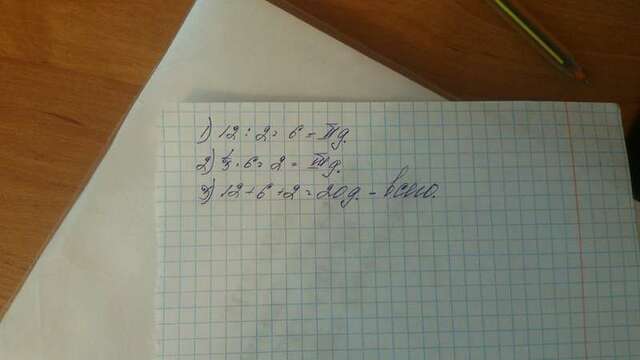 1) 12 : 2 = 6 = II д.
2) 1/3 · 6 = 2 = III д.
3) 12 + 6 + 2 = 20 д. - всего.